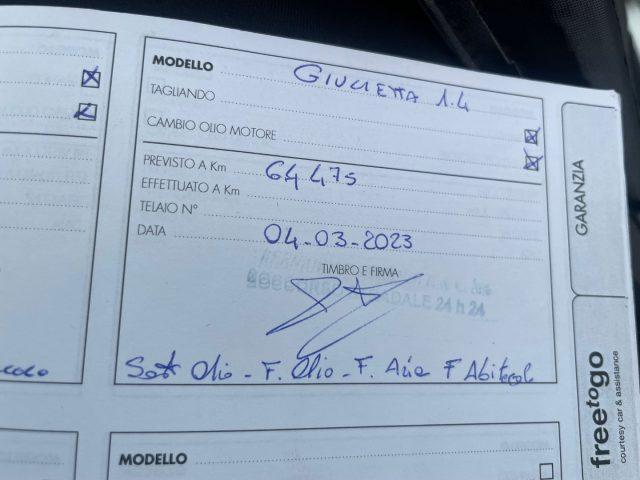 MODELLO GIULIETTA 1.4
TAGLIANDO
CAMBIO OLIO MOTORE
PREVISTO A Km 64475
EFFETTUATO A Km
TELAIO N°
DATA 04-03-2023
TIMBRO E FIRMA
STRADALE 24 h 24
Sost Olio - F. Olio - F. Aria F Abitacol
MODELLO
GARANZIA
freetogo
courtesy car & assistance